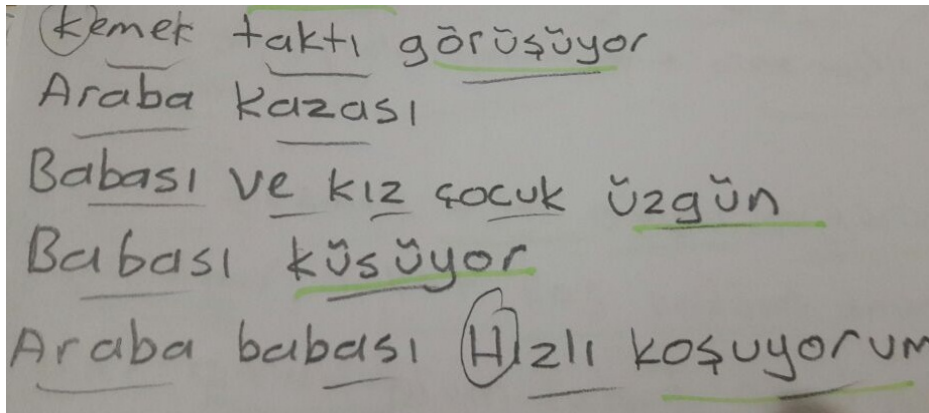 Kemer taktı görüşüyor
Araba kazası
Babası ve kız çocuk üzgün
Babası küsüyor
Araba babası Hızlı koşuyorum